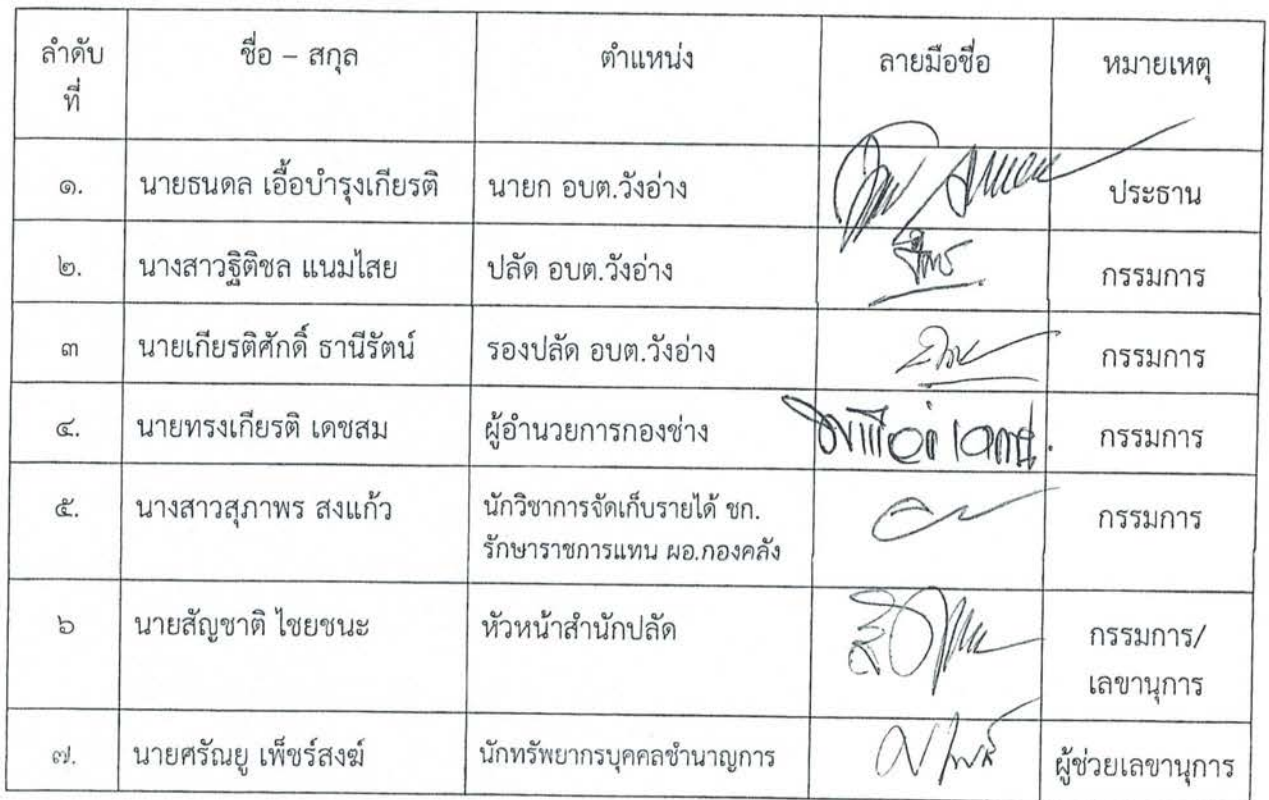 ลำดับ ชื่อ – สกุล ตำแหน่ง ลายมือชื่อ หมายเหตุ
ที่
๑. นายธนดล เอื้อบำรุงเกียรติ นายก อบต.วังอ่าง ประธาน
๒. นางสาวฐิติชล แนมไสย ปลัด อบต.วังอ่าง กรรมการ
๓ นายเกียรติศักดิ์ ธานีรัตน์ รองปลัด อบต.วังอ่าง กรรมการ
๔. นายทรงเกียรติ เดชสม ผู้อำนวยการกองช่าง กรรมการ
๕. นางสาวสุภาพร สงแก้ว นักวิชาการจัดเก็บรายได้ ชก. กรรมการ
รักษาราชการแทน ผอ.กองคลัง
๖ นายสัญชาติ ไชยชนะ หัวหน้าสำนักปลัด กรรมการ/
เลขานุการ
๗. นายศรัณยู เพ็ชร์สงฆ์ นักทรัพยากรบุคคลชำนาญการ ผู้ช่วยเลขานุการ